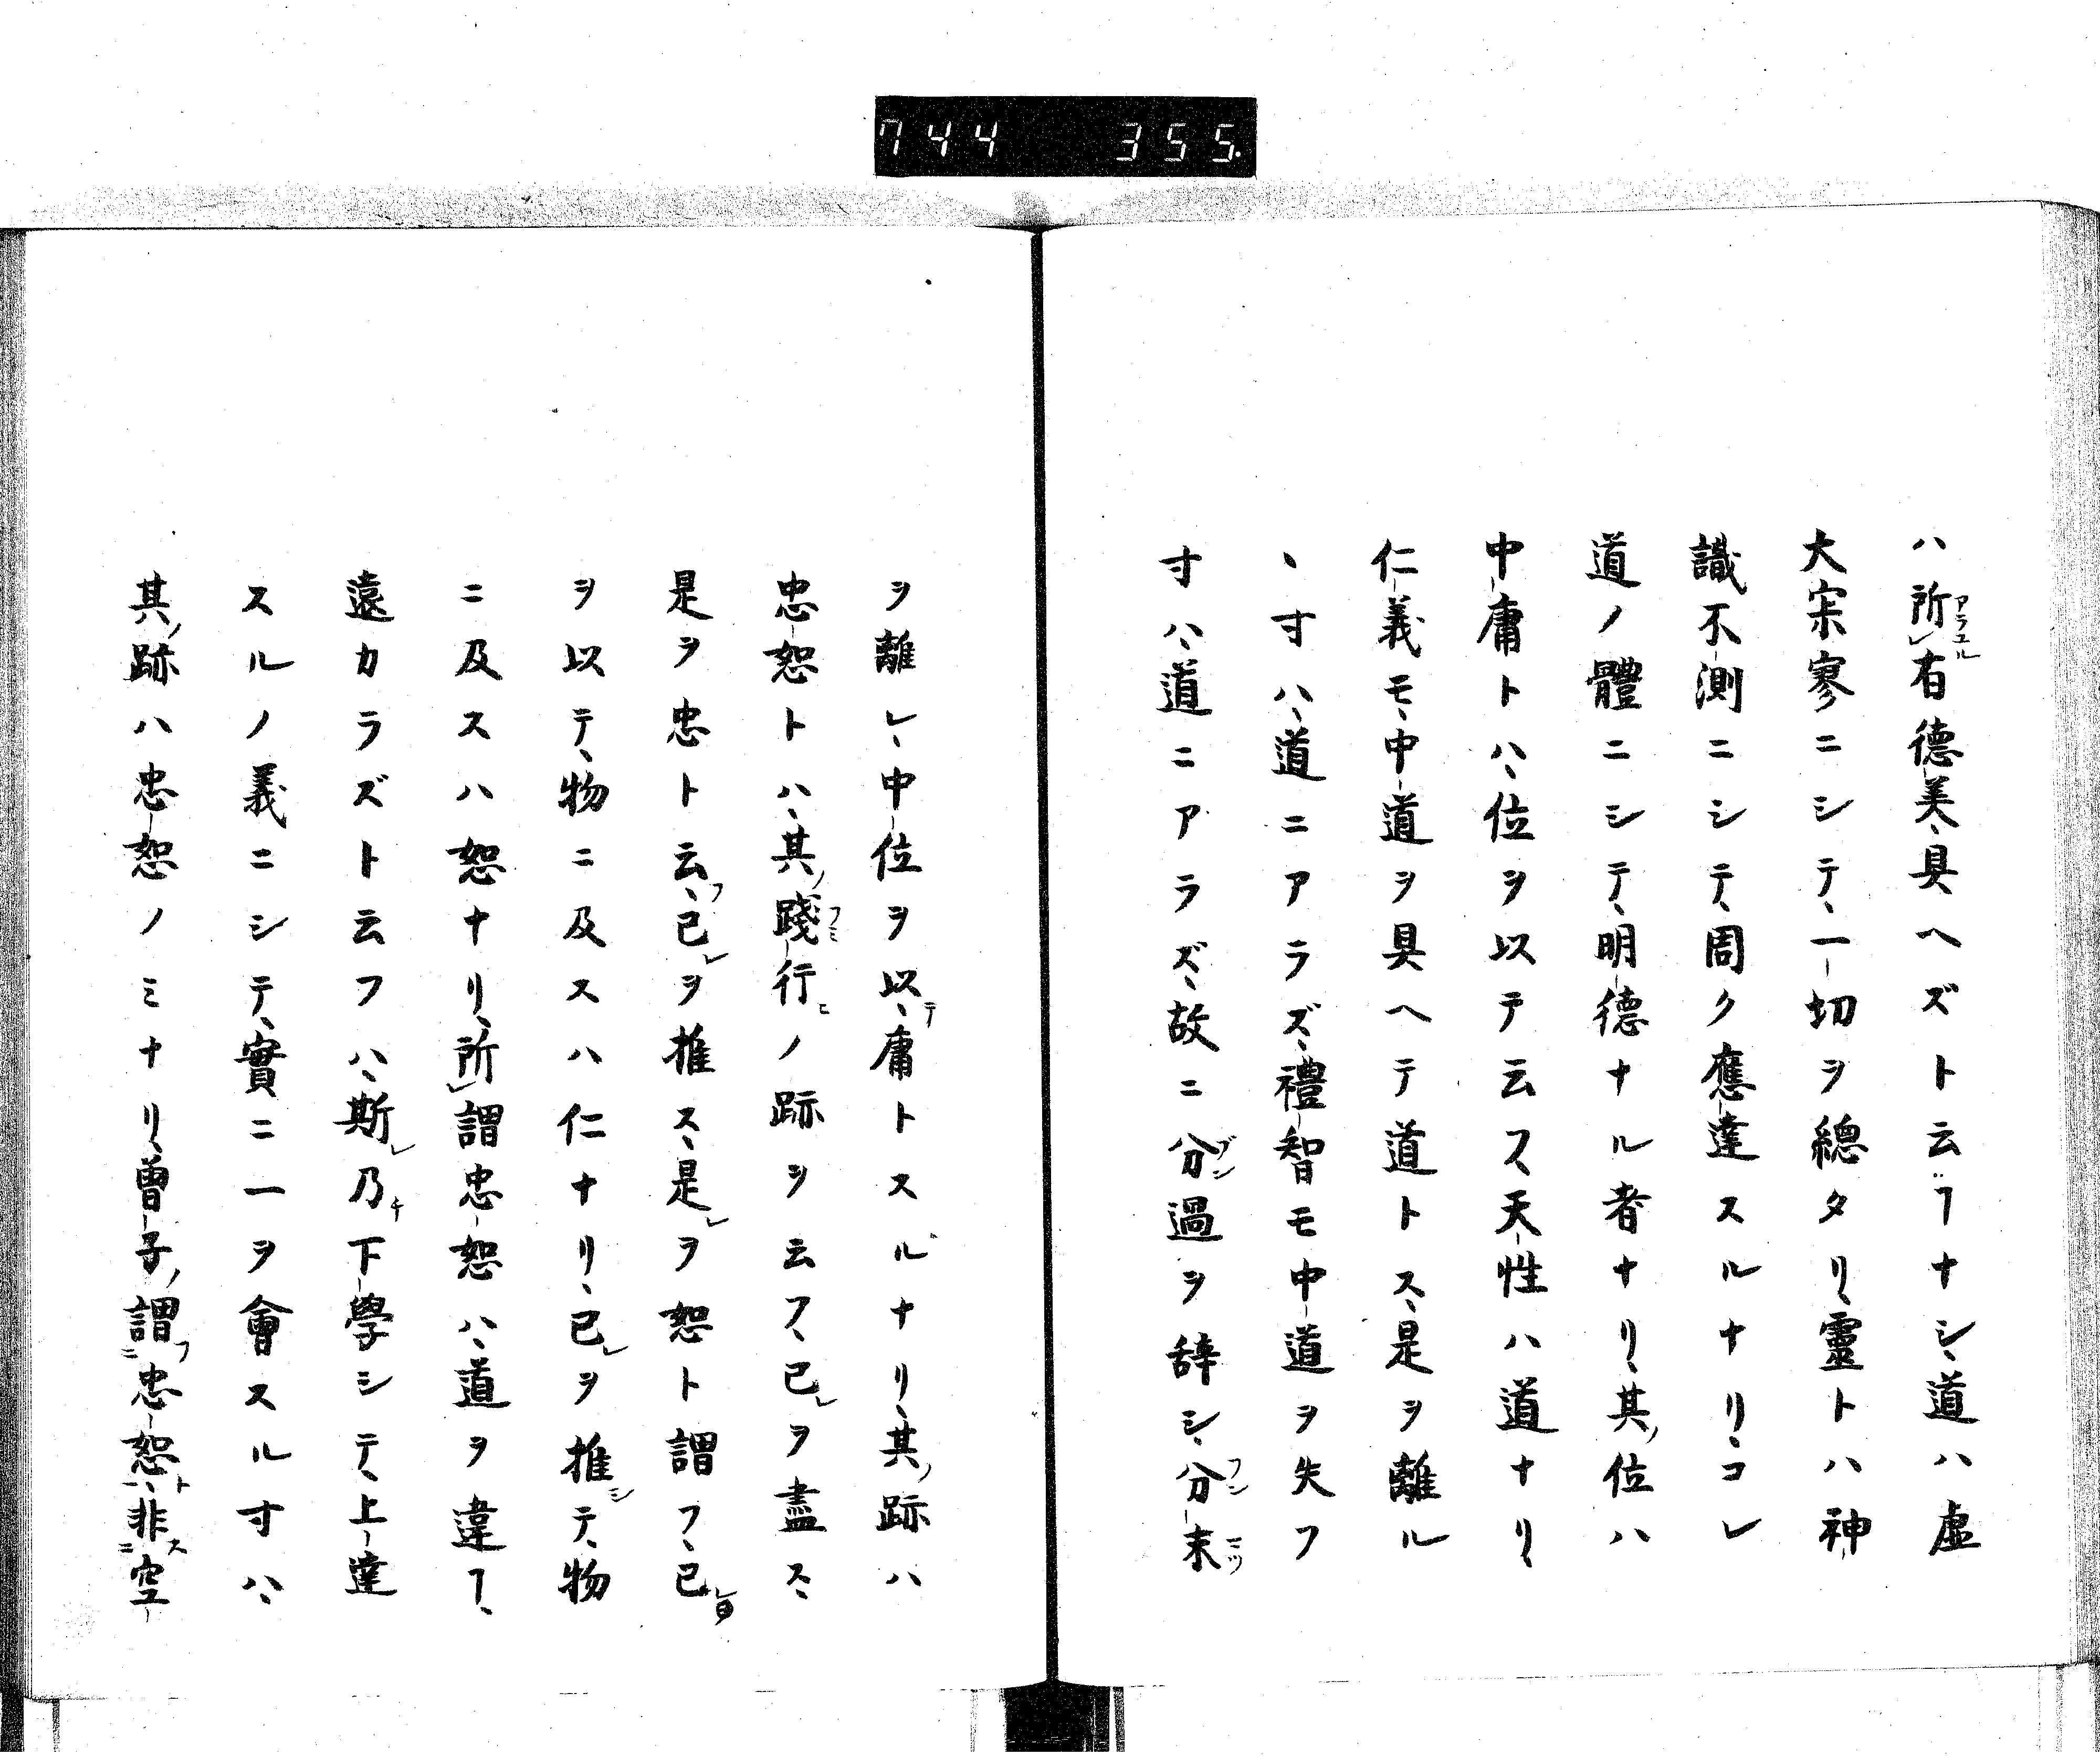 744 355.
ハ所有德美、具ヘズト云フヿナシ、道ハ虛
大宗寥ニシテ、一切ヲ總タリ、靈トハ神
識不測ニシテ、周ク應達スルナリ、コレ
道ノ體ニシテ、明德ナル者ナリ、其ノ位ハ
中庸トハ、位ヲ以テ云フ、天性ハ道ナリ、
仁義モ、中道ヲ具ヘテ道トス、是ヲ離ル
ヽ寸ハ、道ニアラズ、禮智モ中道ヲ失フ
寸ハ、道ニアラズ、故ニ分過ヲ辞シ、分末
ヲ離レ、中位ヲ以テ、庸トスルナリ、其ノ跡ハ
忠恕トハ、其ノ踐行ノ跡ヲ云フ、己レヲ盡ス、
是ヲ忠ト云フ、己レヲ推ス、是レヲ恕ト謂フ、己
ヲ以テ、物ニ及スハ仁ナリ、己レヲ推シテ、物
ニ及スハ恕ナリ、所謂忠恕ハ、道ヲ違ヿ、
遠カラズト云フハ、斯レ乃チ下學シテ、上達
スルノ義ニシテ、實ニ一ヲ會スル寸ハ、
其ノ跡ハ忠恕ノミナリ、曽子ノ謂フ忠恕トハ、非ス空